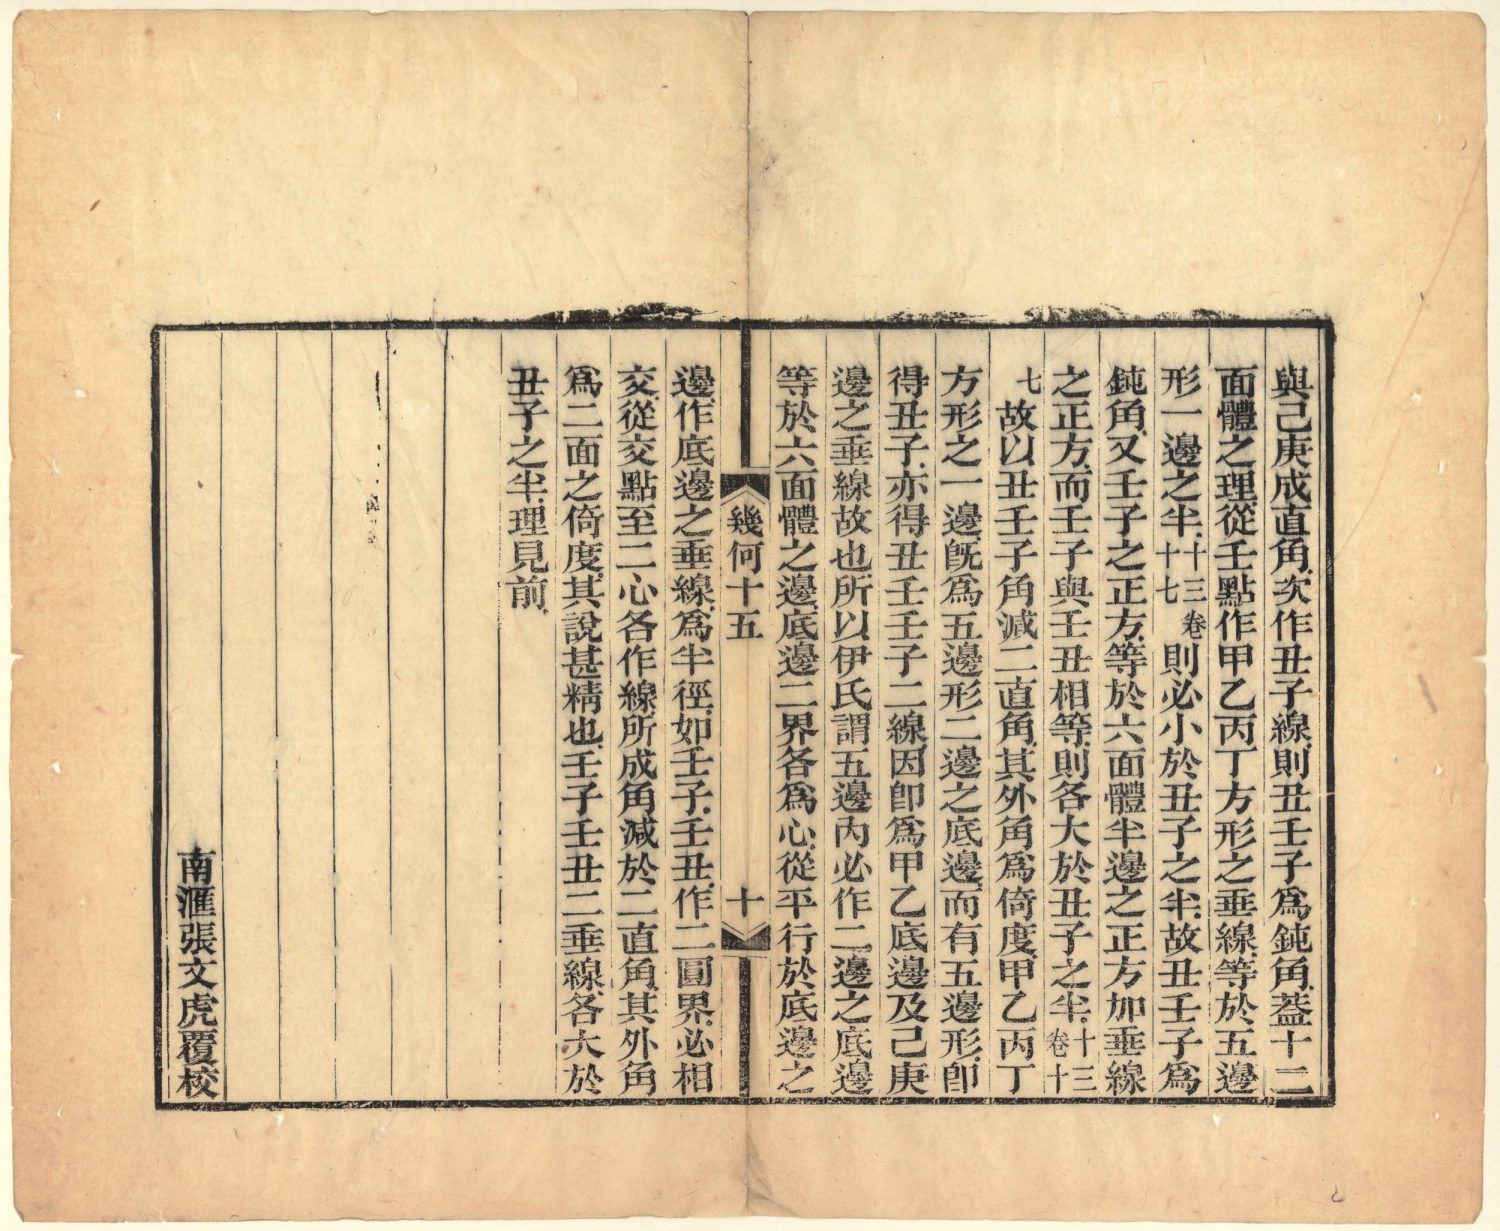 與己庚成直角、次作丑子線、則丑壬子爲鈍角、葢十二
面體之理、從壬點作甲乙丙丁方形之垂線、等於五邊
形一邊之半、十三卷十七則必小於丑子之半、故丑壬子爲
鈍角、又壬子之正方、等於六面體半邊之正方加垂線
之正方、而壬子與壬丑相等、則各大於丑子之半、十三卷十
七故以丑壬子角減二直角、其外角爲倚度、甲乙丙丁
方形之一邊、旣爲五邊形二邊之底邊、而有五邊形、卽
得丑子、亦得丑壬壬子二線、因卽爲甲乙底邊及己庚
邊之垂線故也、所以伊氏謂五邊內必作二邊之底邊
等於六面體之邊、底邊二界各爲心、從平行於底邊之
幾何十五 十
邊、作底邊之垂線、爲半徑、如壬子、壬丑、作二圓界、必相
交、從交點至二心各作線、所成角、減於二直角、其外角
爲二面之倚度、其說甚精也、壬子壬丑二垂線、各大於
丑子之半、理見前、
南滙張文虎覆校